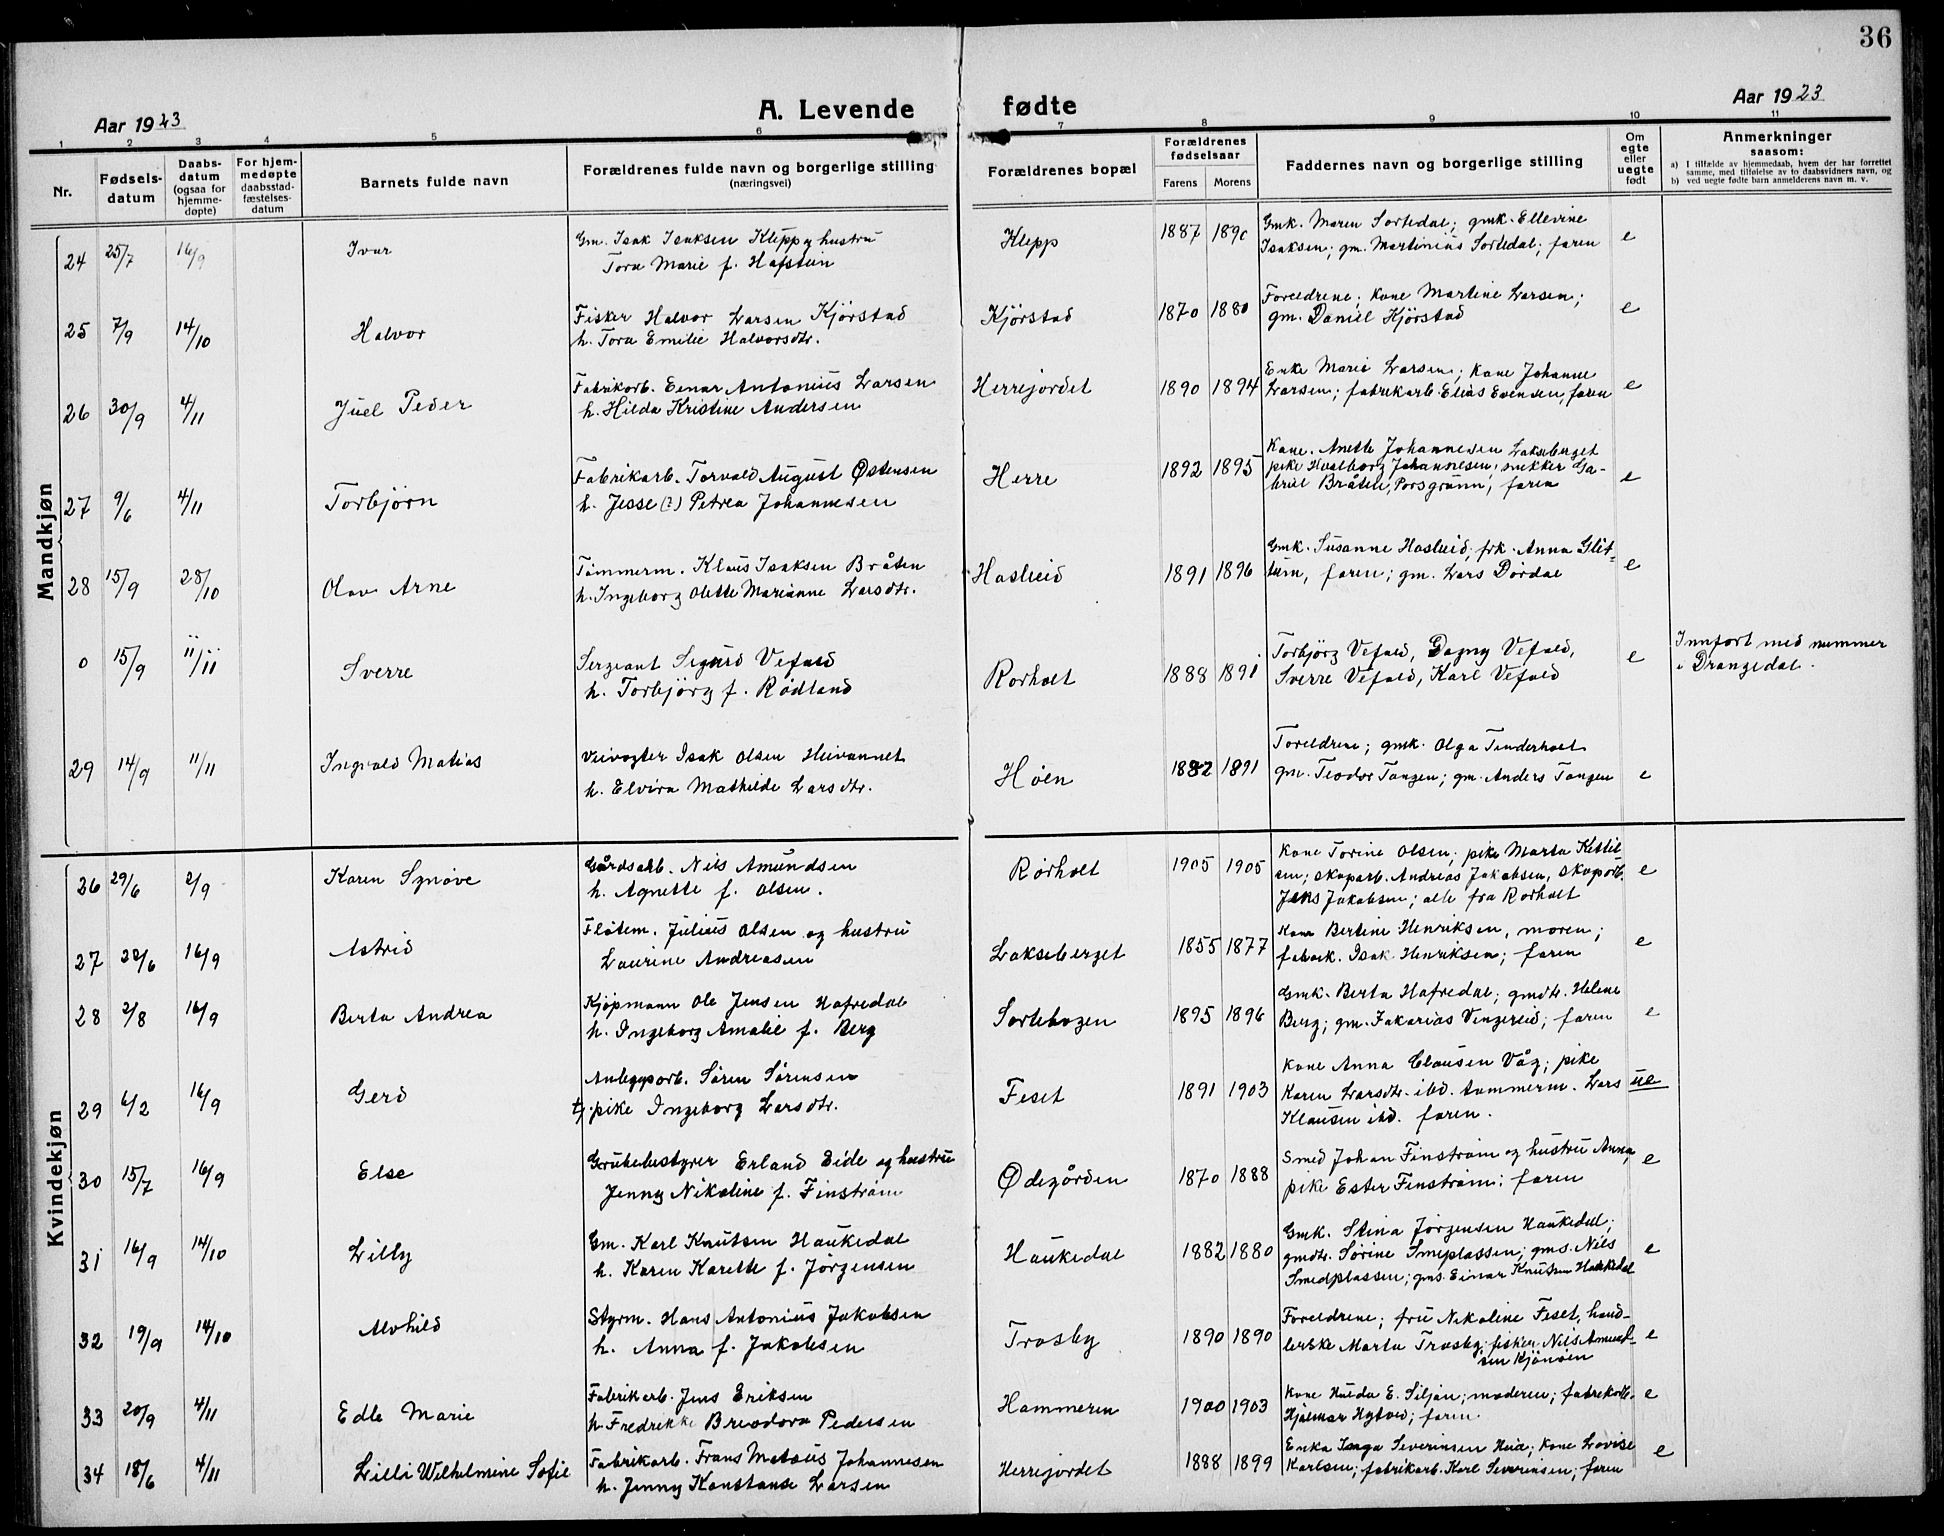 36
Aar 1923
A. Levende fødte
Aar 1923
1 2 3 4 5 6 7 8 9 10 11
Nr.
Fødsels-
datum
Daabs-
datum
(ogsaa for
hjemme-
døpte)
For hjem-
medøpte
daabsstad-
fæstelses-
datum
Barnets fulde navn
Forældrenes fulde navn og borgerlige stilling
(næringsvei)
Forældrenes bopæl
Forældrenes
fødselsaar
Farens Morens
Faddernes navn og borgerlige stilling
Om
egte
eller
uegte
født
Anmerkninger
saasom:
a) I tilfælde av hjemmedaab, hvem der har forrettet
samme, med tilføielse av to daabsvidners navn, og
b) ved uegte fødte barn anmelderens navn m. v.
Mandkjøn
24 25/7 16/9 Ivar
Gm. Isak Isaksen Klepp og hustru
Tora Marie f. Hafstein
Klepp 1887 1890
Gmk. Maren Sortedal; gmk. Ellevine
Isaksen; gm. Martinius Sortedal; faren
e
25 7/9 14/10 Halvor
Fisker Halvor Larsen Kjörstad
h. Tora Emilie Halvorsdtr.
Kjörstad 1870 1880
Foreldrene; Kone Martine Larsen;
gm. Daniel Kjørstad
e
26 30/9 4/11 Juel Peder
Fabrikarb. Einar Antonius Larsen
h. Hilda Kristine Andersen
Herrejordet 1890 1894
Enke Marie Larsen; Kone Johanne
Larsen; fabrikarb. Elias Evensen, faren
e
27 9/6 4/11 Torbjörn
Fabrikarb. Torvald August Østensen
h. Jesse (?) Petrea Johannesen
Herre 1892 1895
Kone. Anette Johannesen Lakseberget
pike Hvalborg Johannesen; snekker Ga-
briel Bråten, Porsgrunn; faren
e
28 15/9 28/10 Olav Arne
Tömmerm. Klaus Isaksen Bråten
h. Ingeborg Olette Marianne Larsdtr.
Hasleid 1891 1896
Gmk. Susanne Hasleid; frk. Anna Glit-
tum, faren; gm. Lars Dørdal
e
0 15/9 11/11 Sverre
Sergeant Sigurd Vefald
h. Torbjörg f. Rødland
Rorholt 1888 1891
Torbjörg Vefald, Dagny Vefald,
Sverre Vefald, Karl Vefald
e
Innfört med nummer
i Drangedal.
29 14/9 11/11 Ingvald Matias
Veivogter Isak Olsen Heivannet
h. Elvira Mathilde Larsdtr.
Höen 1882 1891
Foreldrene; gmk. Olga Tinderholt
gm. Teodor Tangen; gm. Anders Tangen
e
Kvindekjøn
26 29/6 2/9 Karen Synöve
Gårdsarb. Nils Amundsen
h. Agnette f. Olsen.
Rörholt 1905 1905
Kone Torine Olsen; pike Marta Kittil
sen; skogarb. Andreas Jakobsen, skogarb.
Jens Jakobsen; alle fra Rorholt
e
27 20/6 16/9 Astrid
Flötem. Julius Olsen og hustru
Laurine Andreasen
Lakseberget 1855 1877
Kone Bertine Henriksen, moren;
fabark. Isak Henriksen; faren
e
28 2/8 16/9 Berta Andrea
Kjøpmann Ole Jensen Hafredal
h. Ingeborg Amalie f. Berg
Sortebogen 1895 1896
Gmk. Berta Hafredal; gmdtr. Helene
Berg; gm. Zakarias Vingereid; faren
e
29 6/2 16/9 Gerd
Anleggsarb. Sören Sörensen
tj. pike Ingeborg Larsdtr.
Feset 1891 1903
Kone Anna Clausen Våg; pike
Karen Larsdtr. ibd. tommerm. Lars
Klausen ibd. faren.
ue
30 15/7 16/9 Else
Grubebestyrer Erland Eide og hustru
Jenny Nikoline f. Finström
Ødegården 1870 1888
Smed Johan Finström og hustru Anna,
pike Ester Finström; faren
e
31 16/9 14/10 Lilly
Gm. Karl Knutsen Haukedal
h. Karen Karette f. Jörgensen
Haukedal 1882 1880
Gmk. Stina Jörgensen Haukedal;
gmdtr. Sörine Smeplassen; gms. Nils
Smedplassen; gms. Einar Knutsen Haukedal
e
32 19/9 14/10 Alvhild
Styrm. Hans Antonius Jakobsen
h. Anna f. Jakobsen
Trosby 1890 1890
Foreldrene; fru Nikoline Feset, hand-
lerske Marta Trosby; fisker Nils Amund-
sen Kjönöen
e
33 20/9 4/11 Edle Marie
Fabrikarb. Jens Eriksen
h. Fredrikke Breodora Pedersen
Hammeren 1900 1903
Kone Hulda E. Siljan; moderen; fabrikarb.
Hjalmar Hytved; faren.
e
34 18/6 4/11 Lilli Wilhelmine Sofie
Fabrikarb. Frans Mataüs Johannesen
h. Jenny Konstanse Larsen
Herrejordet 1888 1899
Enka Inga Severinsen Heia; Kone Lovise
Karlsen; fabrikarb. Karl Severinsen; faren
e